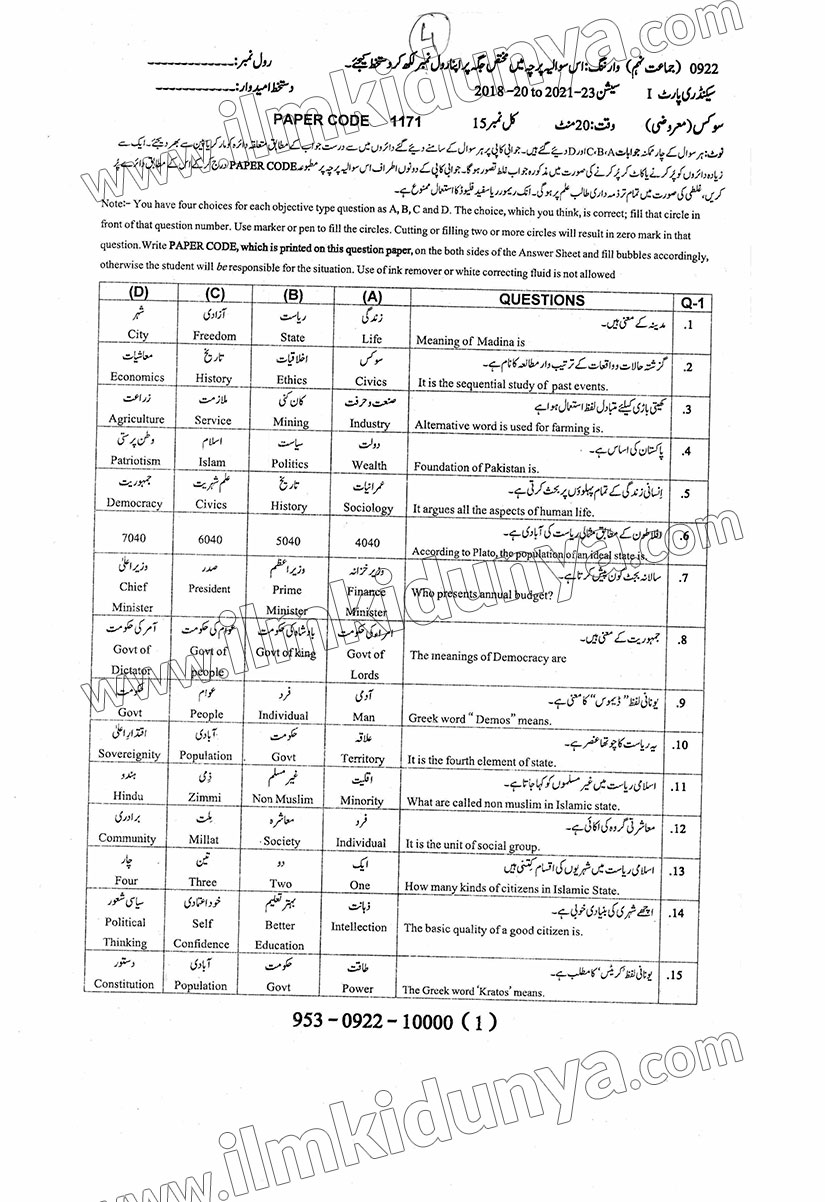 4
0922 (جماعت نہم) وارننگ: اس سوالیہ پرچہ میں مختص جگہ پر اپنا رول نمبر لکھ کر دستخط کیجئے۔ رول نمبر:-------------
سیکنڈری پارٹ I سیشن 2018-20 to 2021-23 دستخط امیدوار:-------------
سوکس (معروضی) وقت: 20 منٹ کل نمبر 15 PAPER CODE 1171
نوٹ: ہر سوال کے چار ممکنہ جوابات A،B،C اور D دیئے گئے ہیں۔ جوابی کاپی پر ہر سوال کے سامنے دیئے گئے دائروں میں سے درست جواب کے مطابق متعلقہ دائرہ کو مارکر یا پین سے بھر دیجئے۔ ایک سے
زیادہ دائروں کو پُر کرنے یا کاٹ کر پُر کرنے کی صورت میں مذکورہ جواب غلط تصور ہوگا۔ جوابی کاپی کے دونوں اطراف اس سوالیہ پرچہ پر مطبوعہ PAPER CODE درج کر کے اس کے مطابق دائرے پُر
کریں، غلطی کی صورت میں تمام تر ذمہ داری طالب علم پر ہوگی۔ انک ریمور یا سفید فلیوڈ کا استعمال ممنوع ہے۔
Note:- You have four choices for each objective type question as A, B, C and D. The choice, which you think, is correct; fill that circle in
front of that question number. Use marker or pen to fill the circles. Cutting or filling two or more circles will result in zero mark in that
question. Write PAPER CODE, which is printed on this question paper, on the both sides of the Answer Sheet and fill bubbles accordingly,
otherwise the student will be responsible for the situation. Use of ink remover or white correcting fluid is not allowed
(D) (C) (B) (A) QUESTIONS Q-1
شہر آزادی ریاست زندگی مدینہ کے معنی ہیں۔ .1
City Freedom State Life Meaning of Madina is
معاشیات تاریخ اخلاقیات سوکس گزشتہ حالات و واقعات کے ترتیب وار مطالعہ کا نام ہے۔ .2
Economics History Ethics Civics It is the sequential study of past events.
زراعت ملازمت کان کنی صنعت و حرفت کھیتی باڑی کیلئے متبادل لفظ استعمال ہوا ہے .3
Agriculture Service Mining Industry Alternative word is used for farming is.
وطن پرستی اسلام سیاست دولت پاکستان کی اساس ہے۔ .4
Patriotism Islam Politics Wealth Foundation of Pakistan is.
جمہوریت علم شہریت تاریخ عمرانیات انسانی زندگی کے تمام پہلوؤں پر بحث کرتی ہے۔ .5
Democracy Civics History Sociology It argues all the aspects of human life.
7040 6040 5040 4040 افلاطون کے مطابق مثالی ریاست کی آبادی ہے۔ .6
According to Plato, the population of an ideal state is.
وزیر اعلیٰ صدر وزیر اعظم وزیر خزانہ سالانہ بجٹ کون پیش کرتا ہے۔ .7
Chief President Prime Finance Who presents annual budget?
Minister Minister Minister
آمر کی حکومت عوام کی حکومت بادشاہ کی حکومت امراء کی حکومت جمہوریت کے معنی ہیں۔ .8
Govt of Govt of Govt of king Govt of The meanings of Democracy are
Dictator people Lords
حکومت عوام فرد آدمی یونانی لفظ "ڈیموس" کا معنی ہے۔ .9
Govt People Individual Man Greek word "Demos" means.
اقتدار اعلیٰ آبادی حکومت علاقہ یہ ریاست کا چوتھا عنصر ہے۔ .10
Sovereignity Population Govt Territory It is the fourth element of state.
ہندو ذمی غیر مسلم اقلیت اسلامی ریاست میں غیر مسلموں کو کہا جاتا ہے۔ .11
Hindu Zimmi Non Muslim Minority What are called non muslim in Islamic state.
برادری ملت معاشرہ فرد معاشرتی گروہ کی اکائی ہے۔ .12
Community Millat Society Individual It is the unit of social group.
چار تین دو ایک اسلامی ریاست میں شہریوں کی اقسام کتنی ہیں .13
Four Three Two One How many kinds of citizens in Islamic State.
سیاسی شعور خود اعتمادی بہتر تعلیم ذہانت اچھے شہری کی بنیادی خوبی ہے۔ .14
Political Self Better Intellection The basic quality of a good citizen is.
Thinking Confidence Education
دستور آبادی حکومت طاقت یونانی لفظ 'کریٹس' کا مطلب ہے۔ .15
Constitution Population Govt Power The Greek word 'Kratos' means.
953-0922-10000 (1)
www.ilmkidunya.com
www.ilmkidunya.com
www.ilmkidunya.com
www.ilmkidunya.com